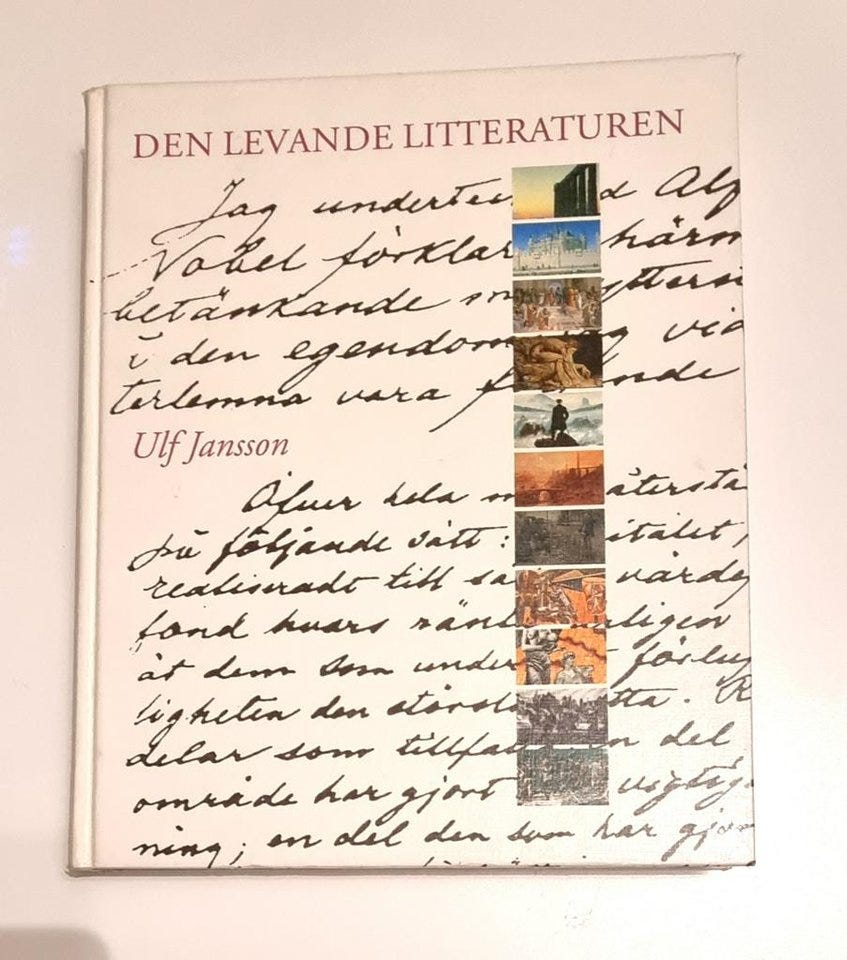 DEN LEVANDE LITTERATUREN
Jag underte d Alf
Nobel förklar härm
betänkande m ytters
i den egendom g vid
terlemna vara f nde
Ulf Jansson
Öfver hela m återstå
på följande sätt: italet,
realiseradt till sä värdep
fond hvars ränt rligen
åt dem som under t förlup
ligheten den största tta. R
delar som tillfalla en del
område har gjort vigtig
ning; en del den som har gjor